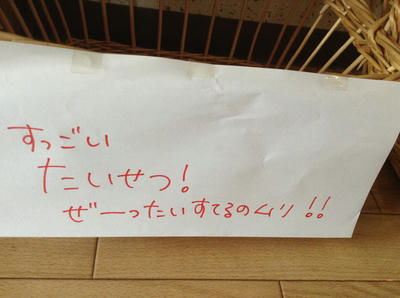 すっごい
たいせつ!
ぜーったいすてるのムリ!!